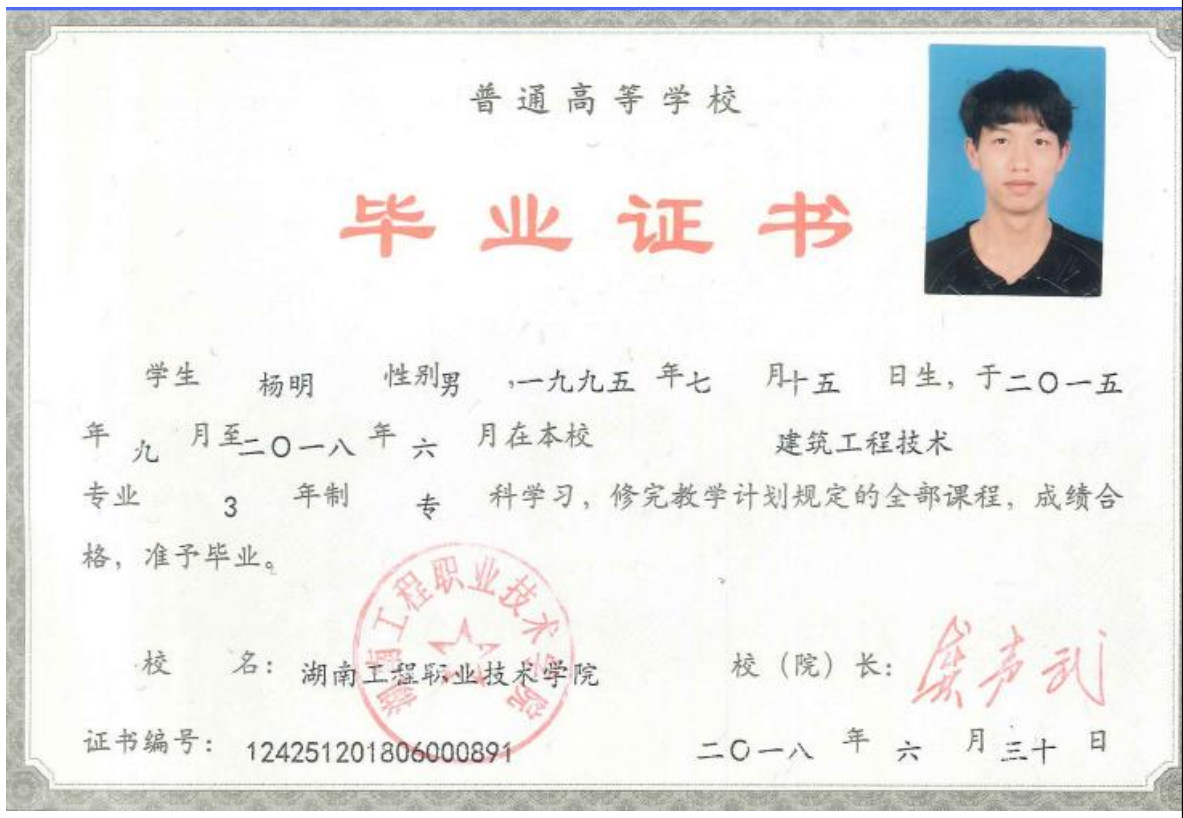 普通高等学校
毕业证书
学生 杨明 性别男 ,一九九五 年七 月十五 日生，于二〇一五
年 九 月至二〇一八 年 六 月在本校 建筑工程技术
专业 3 年制 专 科学习，修完教学计划规定的全部课程，成绩合
格，准予毕业。
湖南工程职业技术学院
校 名：湖南工程职业技术学院 校（院）长：
证书编号：124251201806000891 二〇一八 年 六 月 三十 日